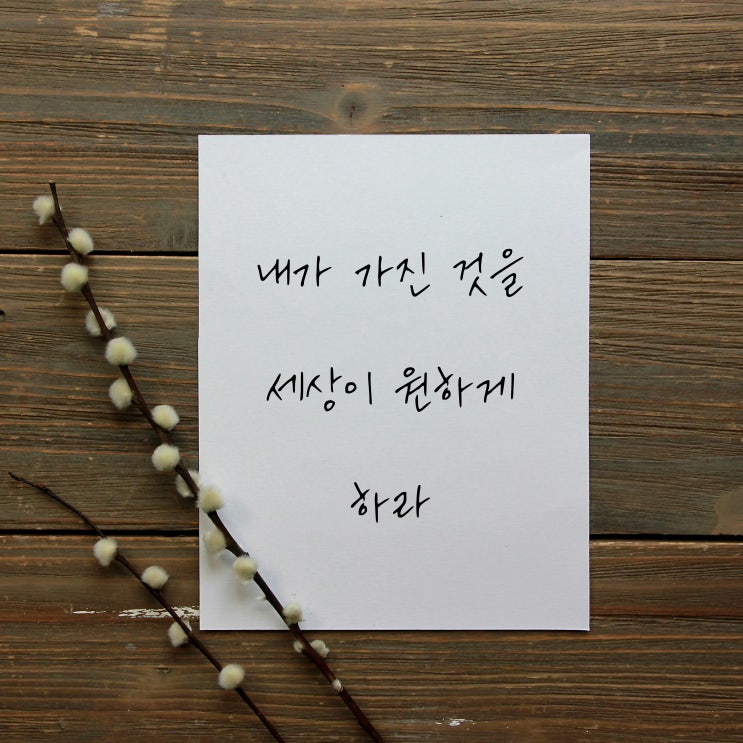 내가 가진 것을
세상이 원하게
하라